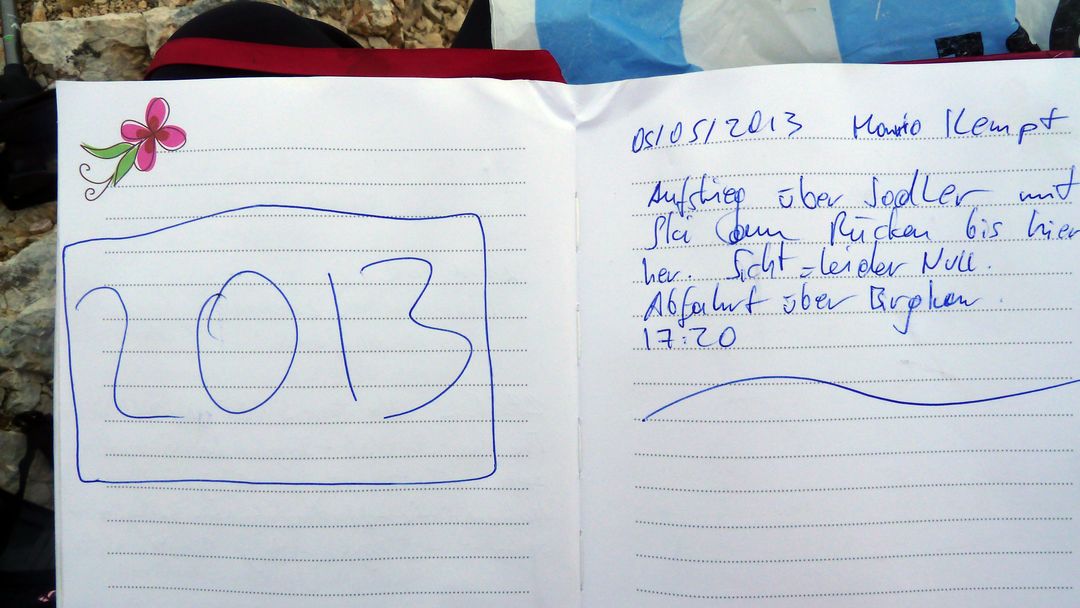 2013
05/05/2013 Mario Kempf
Aufstieg über Sadler mit
Ski am Rücken bis hier
her. Sicht = leider Null.
Abfahrt über
17:20